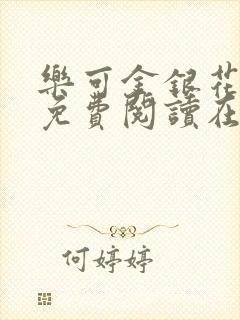 樂可金銀花
免費閱讀在
何婷婷